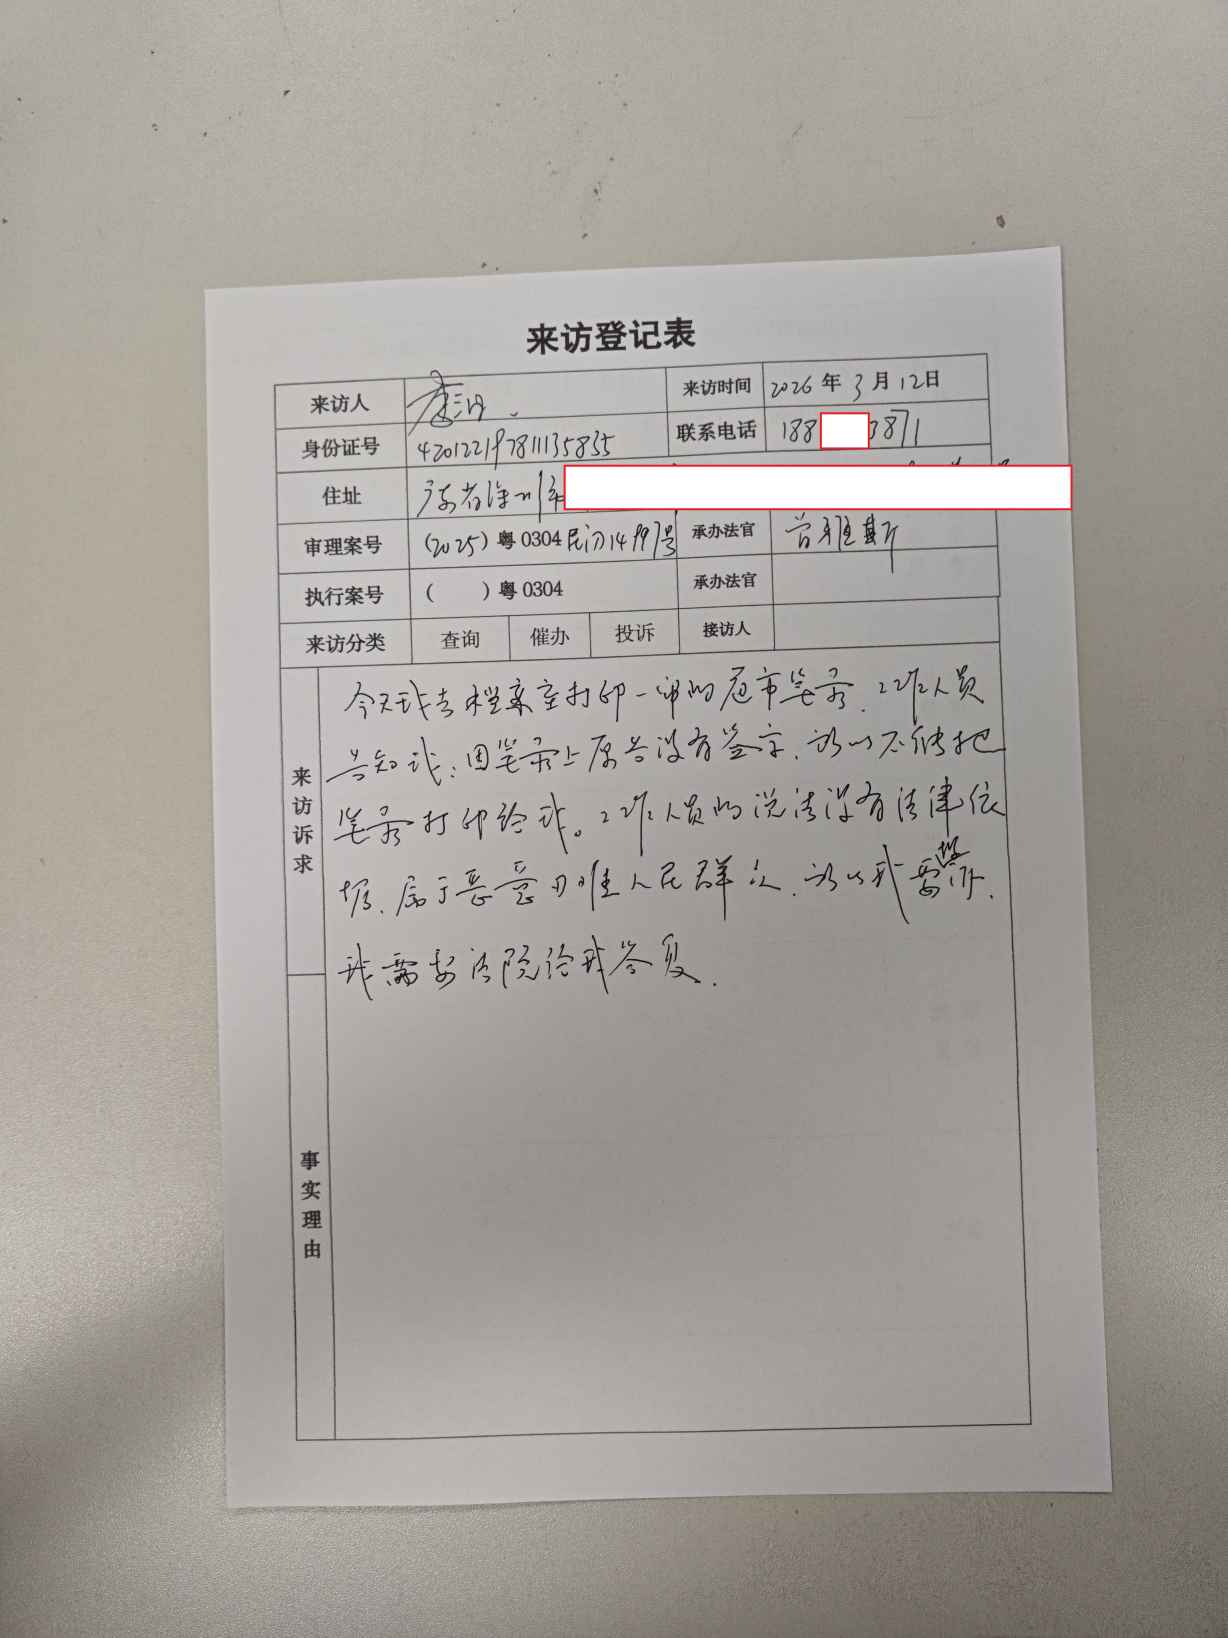 来访登记表
来访人 来访时间 2026年3月12日
身份证号 420122197811135835 联系电话 188 3871
住址 广东省深圳市
审理案号 (2025)粤0304民初14997号 承办法官 曾雅斯
执行案号 ( )粤0304 承办法官
来访分类 查询 催办 投诉 接访人
来访诉求
今天我去档案室打印一审的庭审笔录,工作人员
告知我:因笔录上原告没有签字,所以不能把
笔录打印给我。工作人员的说法没有法律依
据,属于恶意刁难人民群众,所以我要投诉,
我需要法院给我答复.
事实理由